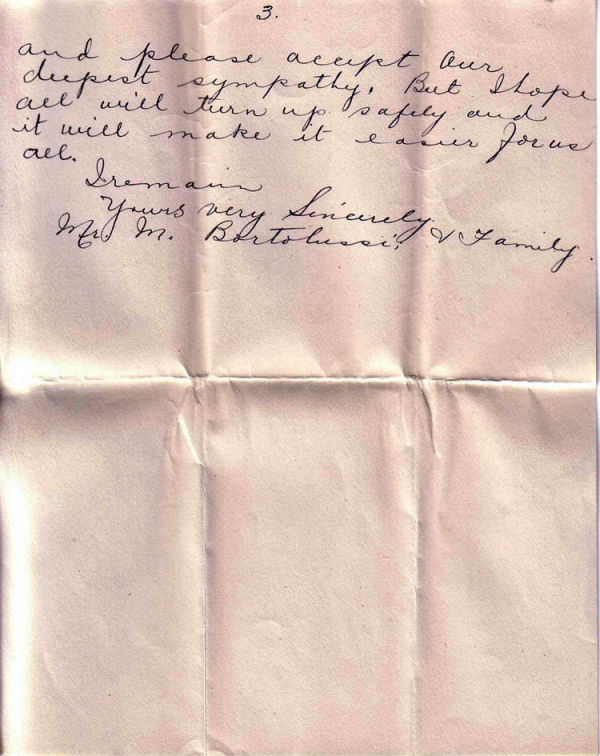 3.
and please accept Our
deepest sympathy. But I hope
all will turn up safely and
it will make it easier for us
all.
I remain
Yours very Sincerely
Mr. M. Bortolussi, & Family.